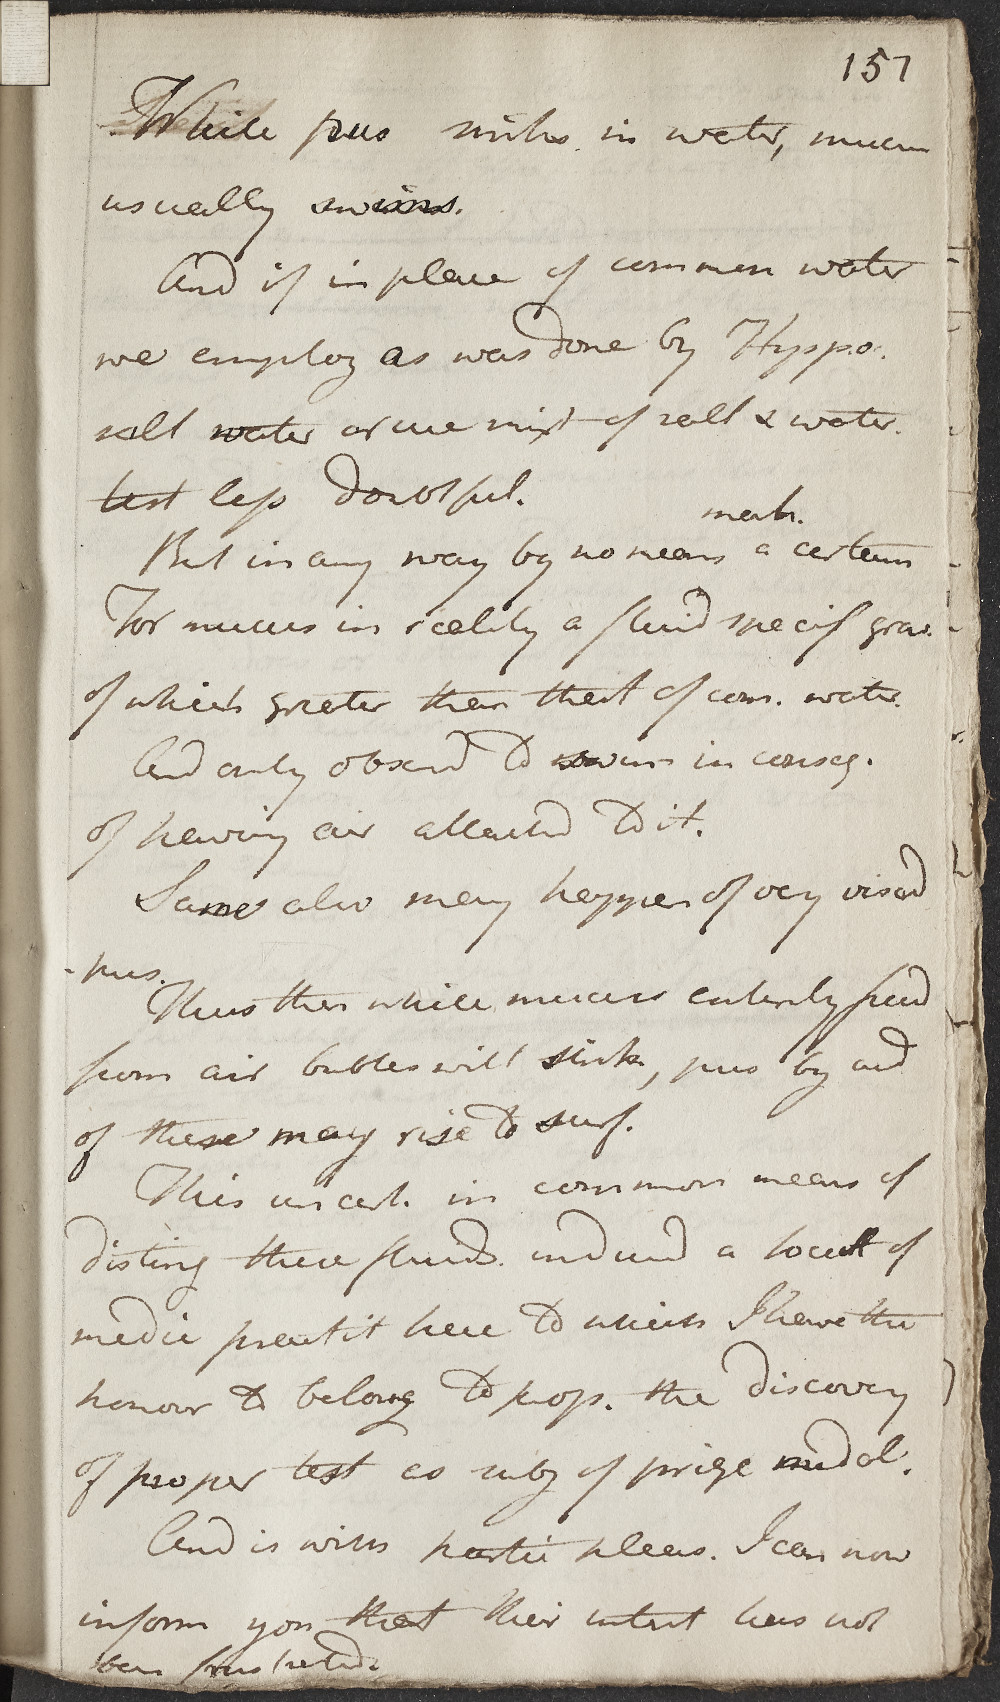 157
While pus sinks in water, mucus
usually swims.
And if in place of common water
we employ as was done by Hyppo.
salt water or we mixt of salt & water
test less doubtful.
mark.
But in any way by no means a certain
For mucus in reality a fluid specif grav.
of which greater than that of com. water.
And only observd to swim in conseq.
of having air attachd to it.
Same also may happen of very viscid
pus.
Thus then while mucus entirely freed
from air bubles will sink, pus by aid
of these may rise to surf.
This uncert. in common means of
disting these fluids inducd a societ of
medic practit here to which I have the
honour to belong to prop. the discovery
of proper test as subj of prize medal.
And is with partic pleas. I can now
inform you that their intent has not
been frustrated.